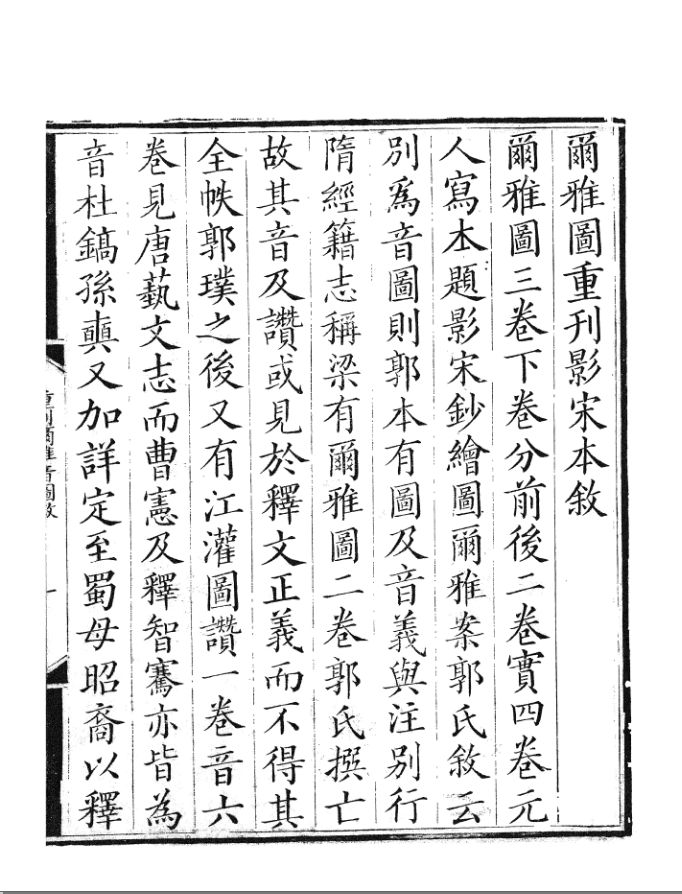 爾雅圖重刊影宋本敘
爾雅圖三卷下卷分前後二卷實四卷元
人寫本題影宋鈔繪圖爾雅案郭氏敘云
別爲音圖則郭本有圖及音義與注別行
隋經籍志稱梁有爾雅圖二卷郭氏撰亡
故其音及讚或見於釋文正義而不得其
全帙郭璞之後又有江灌圖讚一卷音六
卷見唐藝文志而曹憲及釋智騫亦皆為
音杜鎬孫奭又加詳定至蜀毋昭裔以釋
重刊爾雅音圖敘
一